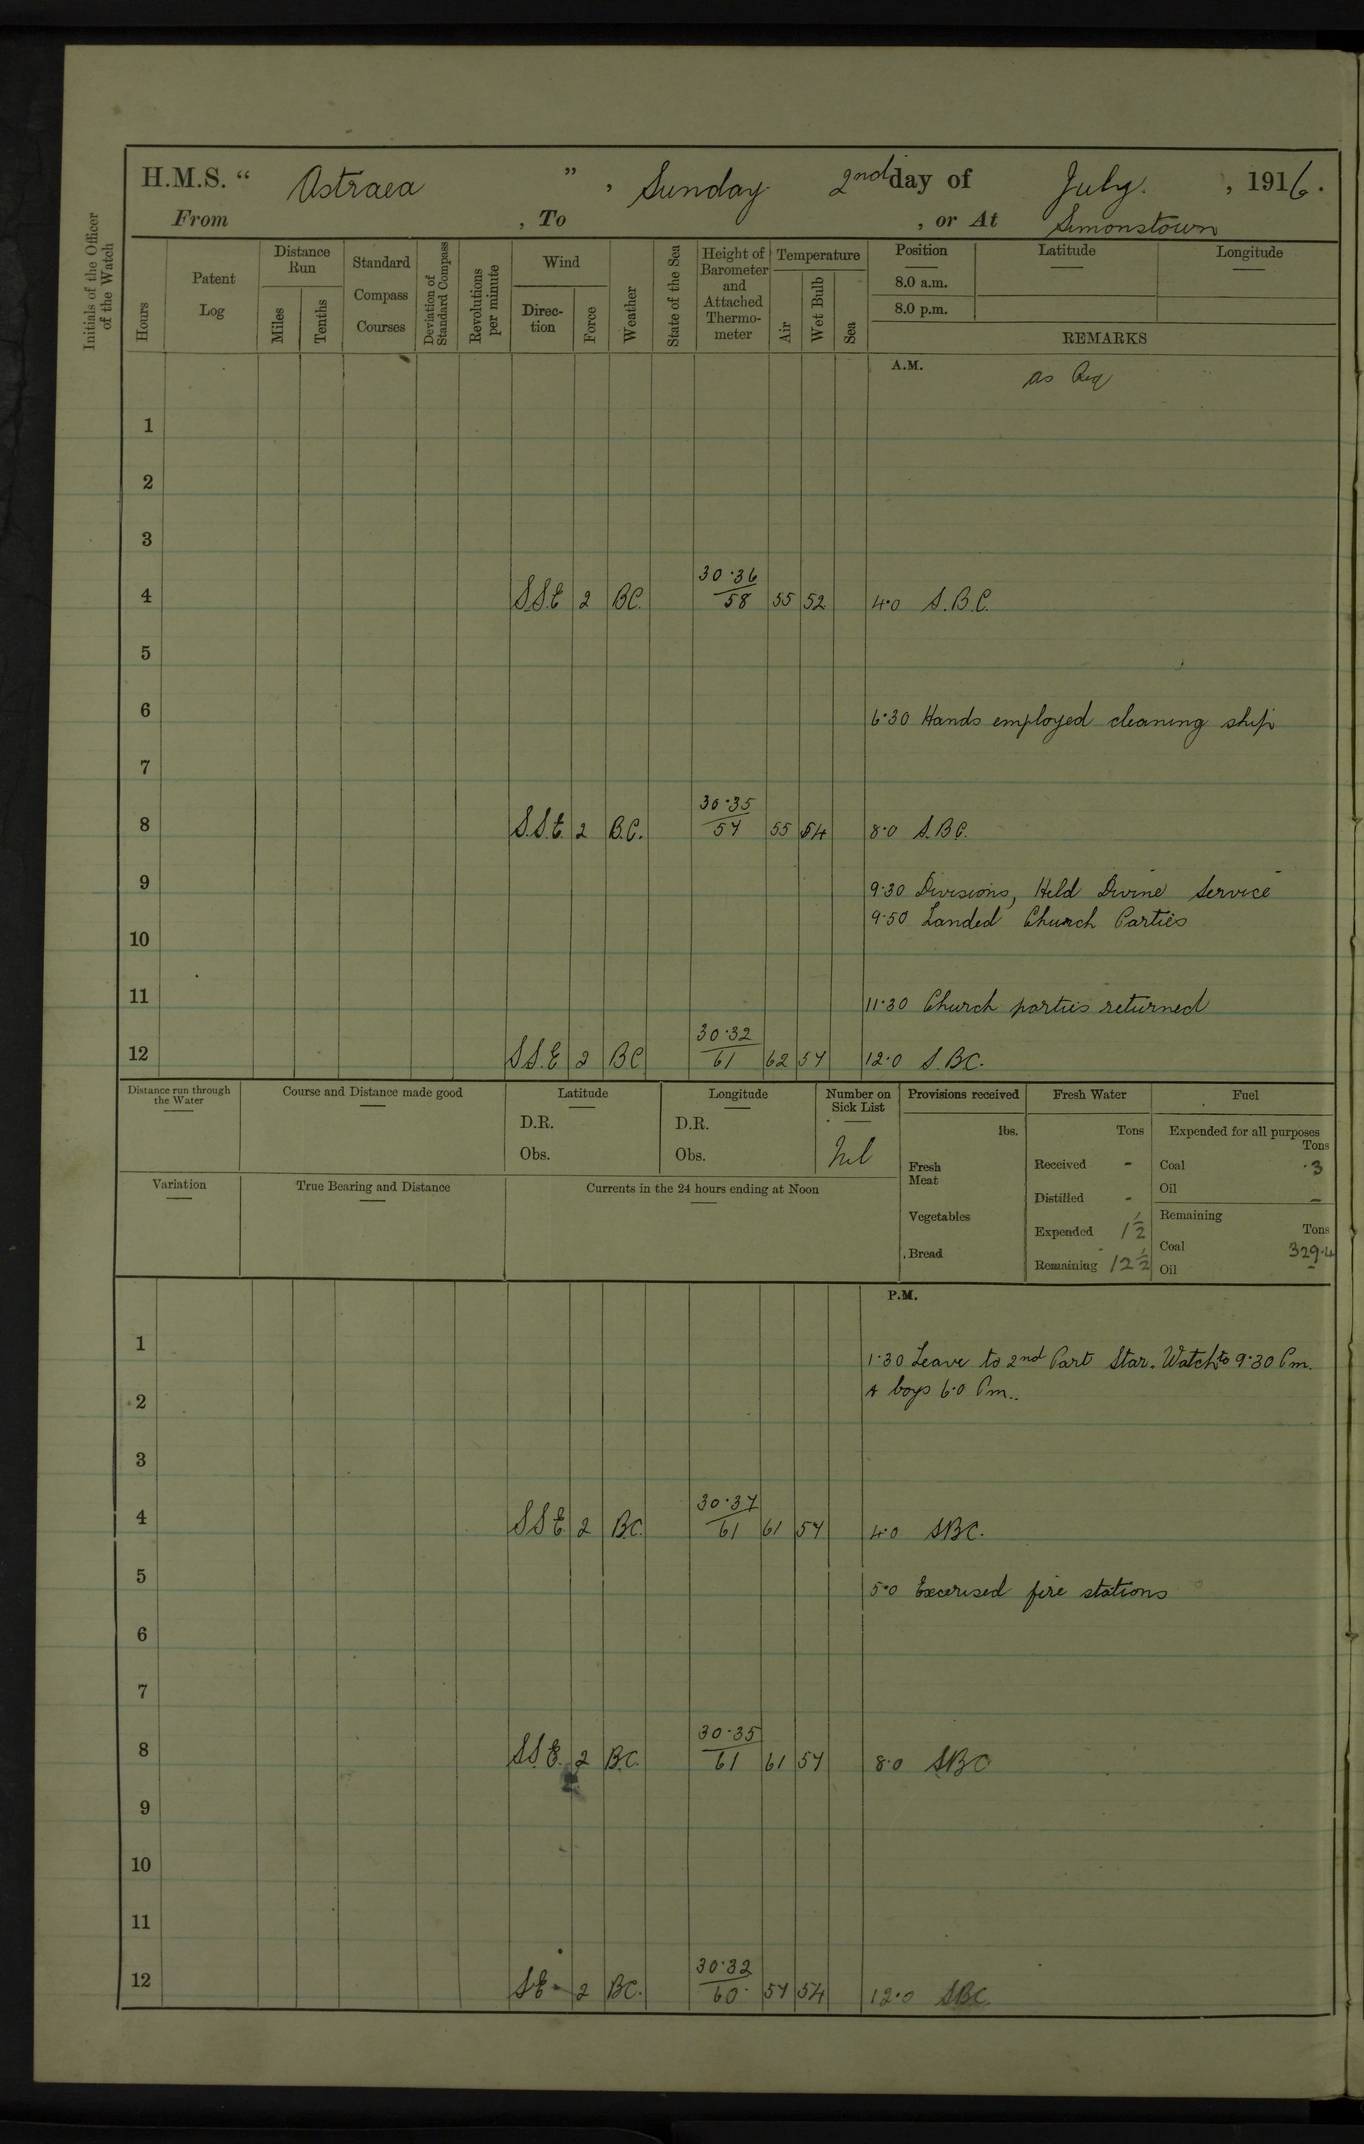 H.M.S. “ Astraea ” , Sunday 2nd day of July. , 1916.
From , To , or At Simonstown
Initials of the Officer of the Watch
Hours
Patent Log
Distance Run
Miles
Tenths
Standard Compass Courses
Deviation of Standard Compass
Revolutions per minute
Wind
Direction
Force
Weather
State of the Sea
Height of Barometer and Attached Thermometer
Temperature
Air
Wet Bulb
Sea
Position
8.0 a.m.
8.0 p.m.
Latitude
Longitude
REMARKS
A.M.
1
2
3
4 S.S.E 2 B.C. 30.36/58 55 52 4.0 S.B.C.
5
6 6.30 Hands employed cleaning ship
7
8 S.S.E. 2 B.C. 30.35/57 55 54 8.0 S.B.C.
9 9.30 Divisions, Held Divine Service
9.50 Landed Church Parties
10
11 11.30 Church parties returned
12 S.S.E 2 BC 30.32/61 62 57 12.0 S.BC.
Distance run through the Water
Course and Distance made good
Latitude
D.R.
Obs.
Longitude
D.R.
Obs.
Number on Sick List
Nil
Variation
True Bearing and Distance
Currents in the 24 hours ending at Noon
Provisions received
lbs.
Fresh Meat
Vegetables
Bread
Fresh Water
Tons
Received -
Distilled -
Expended 1 1/2
Remaining 12 1/2
Fuel
Expended for all purposes
Tons
Coal .3
Oil -
Remaining
Tons
Coal 329.4
Oil -
P.M.
1 1.30 Leave to 2nd Part Star. Watch to 9.30 Pm.
& boys 6.0 Pm..
2
3
4 SSE 2 B.C. 30.37/61 61 57 4.0 SBC.
5 5.0 Excerised fire stations
6
7
8 S.S.E. 2 B.C. 30.35/61 61 57 8.0 SBC
9
10
11
12 S.E 2 BC. 30.32/60 57 54 12.0 SBC.